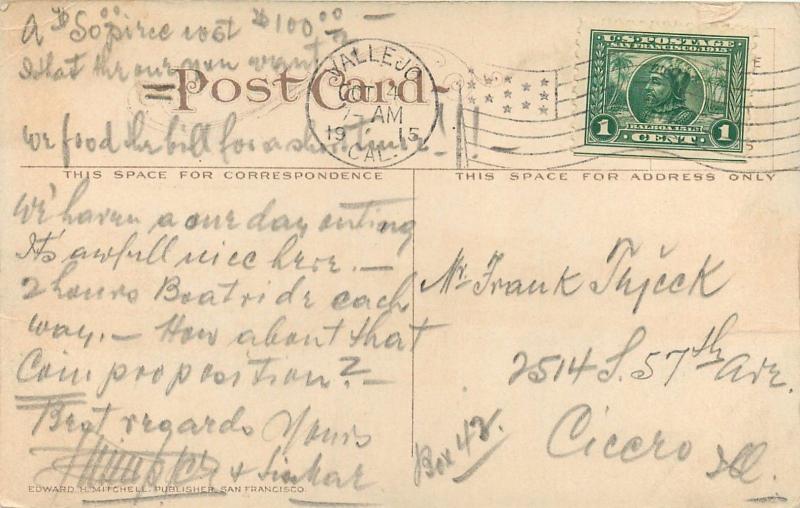 A $50.00 piece cost $100.00 —
That the one you want
Post Card
We food the bill for a short time!!—
VALLEJO
OCT 4
7-AM
1915
CAL.
U.S. POSTAGE
SAN FRANCISCO 1915
BALBOA 1513
1 CENT 1
THIS SPACE FOR CORRESPONDENCE
THIS SPACE FOR ADDRESS ONLY
We haven a one day outing
It's awfull nice here. —
2 hours Boat ride each
way. — How about that
Coin proposition? —
Best regards Yours
&
Mr. Frank
2514 S. 57th Ave.
Cicero Ill.
Box 42.
EDWARD H. MITCHELL, PUBLISHER, SAN FRANCISCO.